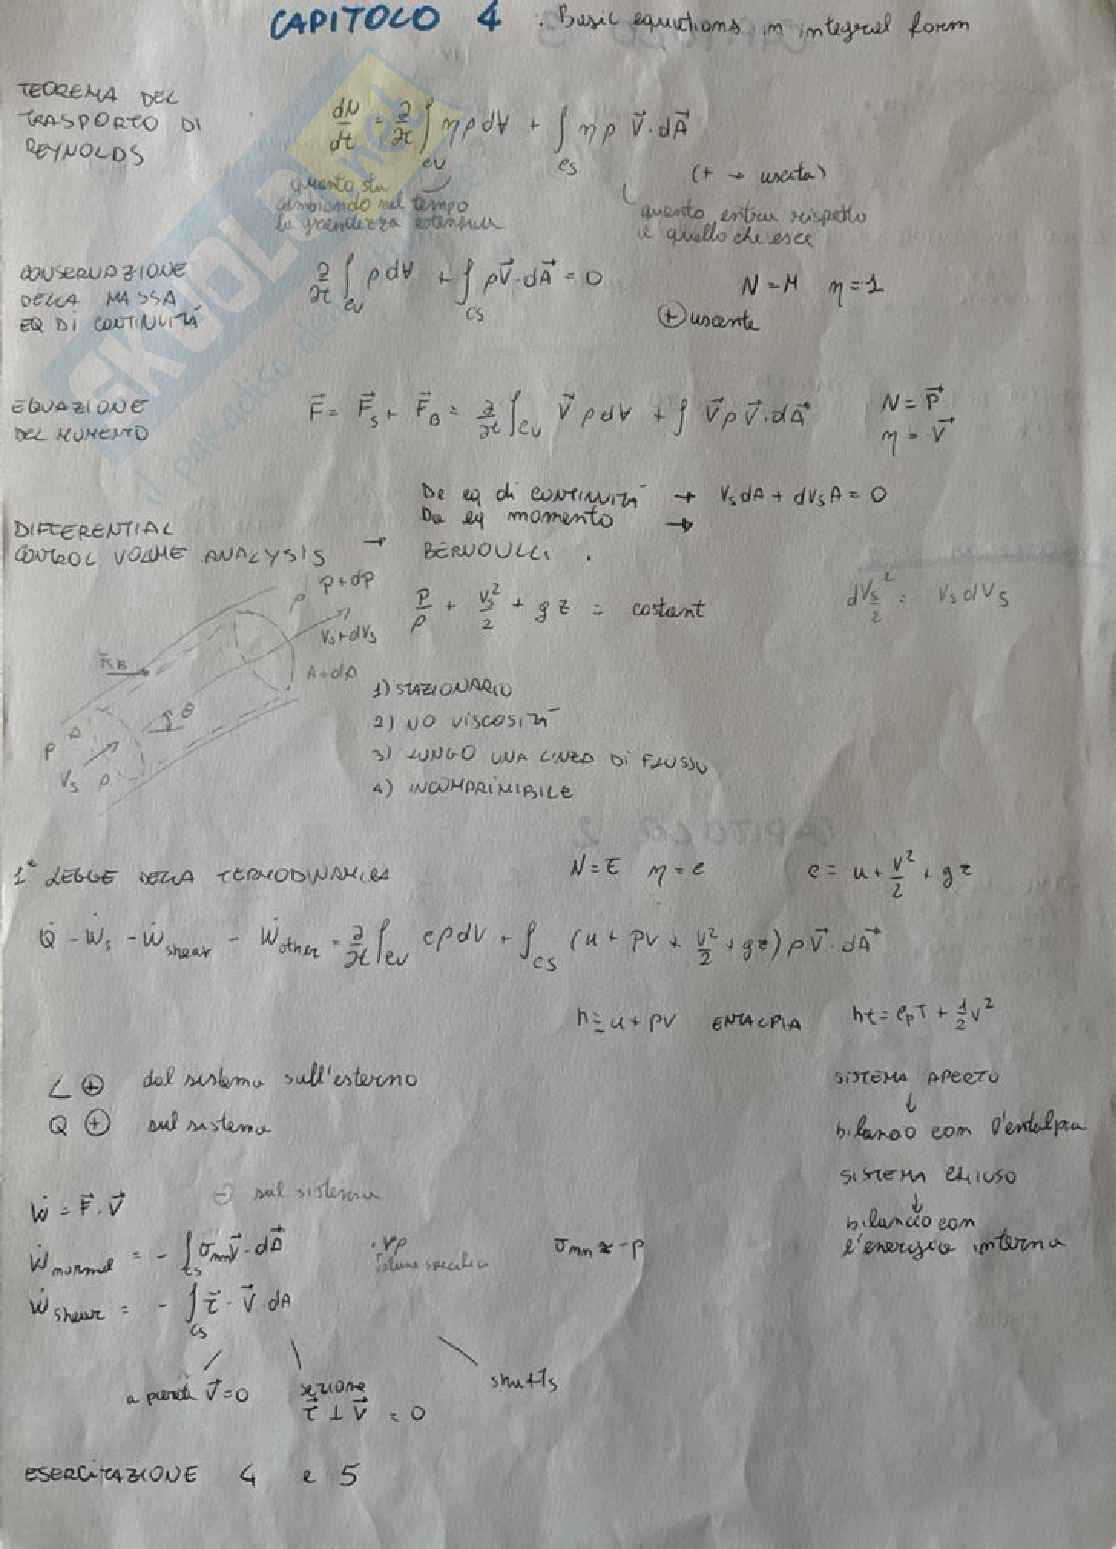 CAPITOLO 4 . Basic equations in integral form
TEOREMA DEL
TRASPORTO DI
REYNOLDS
dN/dt = ∂/∂t ∫_CV ηρ dV + ∫_CS ηρ V⃗·dA⃗
(+ → uscita)
quanto sta
cambiando nel tempo
la grandezza estensiva
quanto entra rispetto
a quello che esce
CONSERVAZIONE
DELLA MASSA
EQ DI CONTINUITÀ
∂/∂t ∫_CV ρ dV + ∫_CS ρV⃗·dA⃗ = 0
N = M η = 1
⊕ uscente
EQUAZIONE
DEL MOMENTO
F⃗ = F⃗_S + F⃗_B = ∂/∂t ∫_CV V⃗ ρ dV + ∫ V⃗ρ V⃗·dA⃗
N = P⃗
η = V⃗
Da eq di CONTINUITÀ → V_S dA + dV_S A = 0
Da eq momento →
DIFFERENTIAL
CONTROL VOLUME ANALYSIS → BERNOULLI .
P/ρ + V_S²/2 + gz = costant
dV_S²/2 = V_S dV_S
ρ p+dp
V_S+dV_S
A+dA
θ
P A
V_S ρ
1) STAZIONARIO
2) NO VISCOSITÀ
3) LUNGO UNA LINEA DI FLUSSO
4) INCOMPRIMIBILE
1ª LEGGE DELLA TERMODINAMICA
N = E η = e e = u + V²/2 + gz
Q̇ - Ẇ_s - Ẇ_shear - Ẇ_other = ∂/∂t ∫_CV eρ dV + ∫_CS (u + pv + V²/2 + gz) ρ V⃗·dA⃗
h = u + pv ENTALPIA ht = c_p T + 1/2 v²
L ⊕ dal sistema sull'esterno
Q ⊕ sul sistema
SISTEMA APERTO
↓
bilancio con l'entalpia
SISTEMA CHIUSO
↓
bilancio con
l'energia interna
Ẇ = F⃗·V⃗
⊖ sul sistema
Ẇ_normal = - ∫_CS σ_nn V⃗·dA⃗
volume specifico
σ_nn ≈ -p
Ẇ_shear = - ∫_CS τ⃗·V⃗ dA
a pareti V⃗ = 0
sezione
τ⃗ ⊥ V⃗ = 0
shafts
ESERCITAZIONE 4 e 5
SKUOLA.net
il paradiso dello